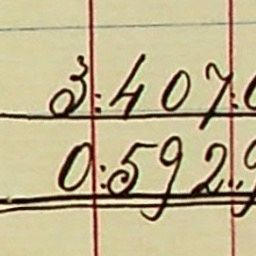 3:407:0
0:592..9